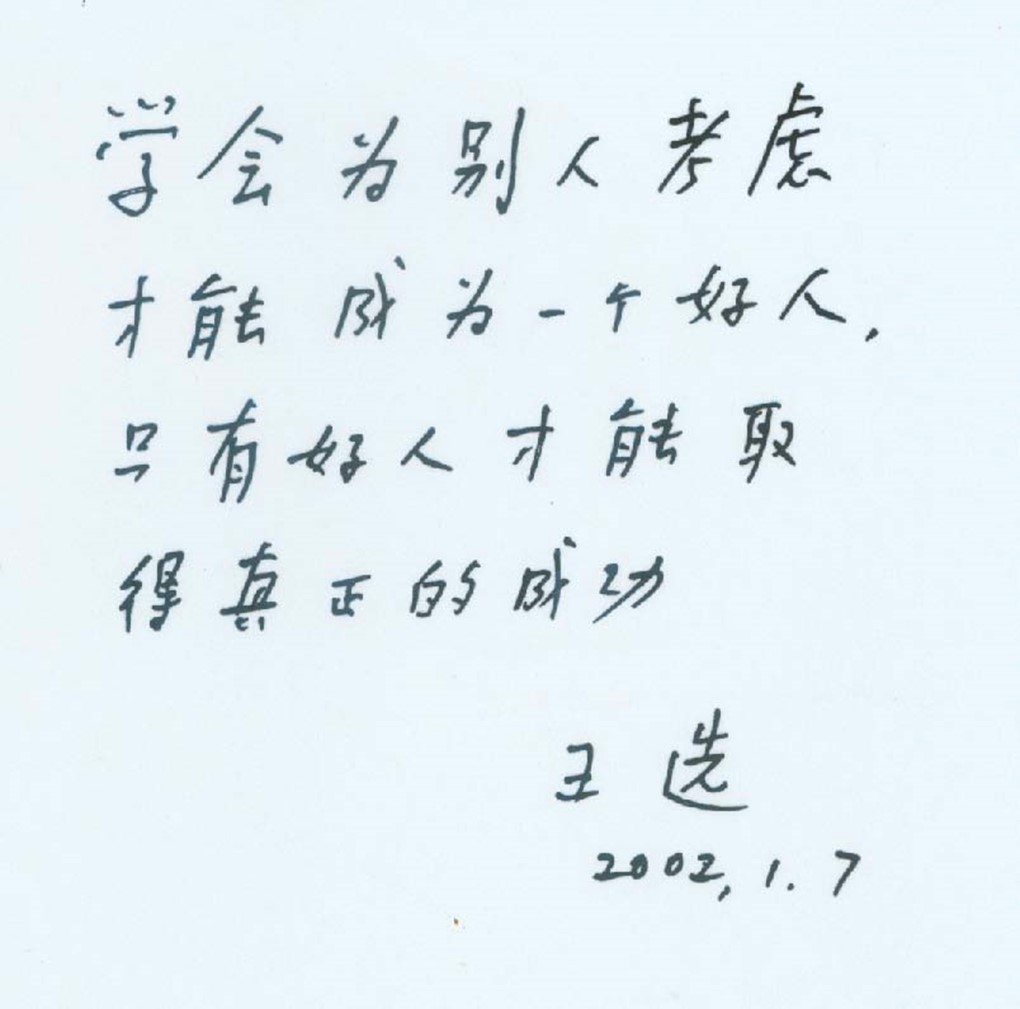 学会为别人考虑
才能成为一个好人,
只有好人才能取
得真正的成功
王选
2002,1.7